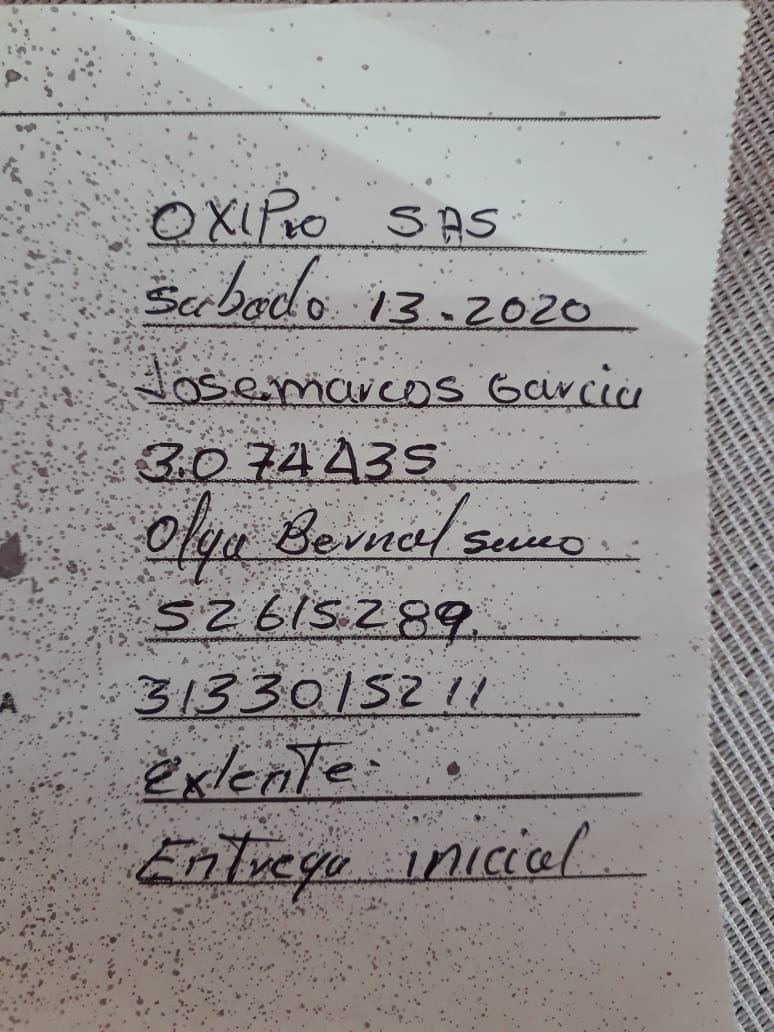 OXIPro SAS
Sabado 13.2020
Jose marcos Garcia
3.074435
Olga Bernal
52615289.
3133015211
exlente.
Entrega inicial
A